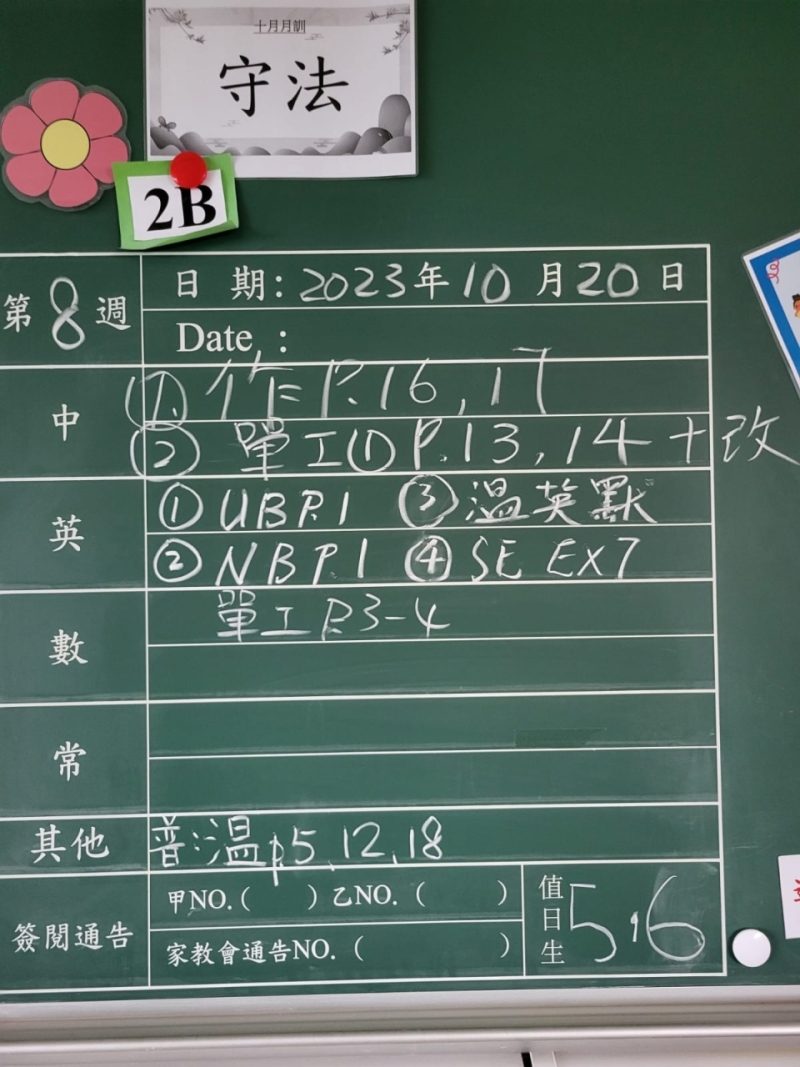 十月月訓
守法
2B
第8週
日 期：2023年10月20日
Date ：
中
①作P.16,17
②單工①P.13,14+改
英
①UBP.1 ③溫英默
②NBP.1 ④SE EX7
數
單工P.3-4
常
其他
普:溫p5,12,18
簽閱通告
甲NO.( ) 乙NO.( )
家教會通告NO.( )
值日生
5,6